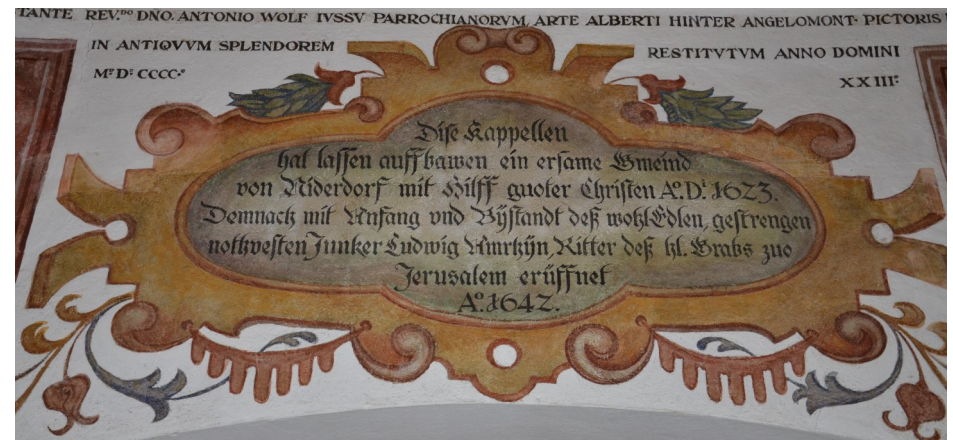 TANTE REV.DO DNO. ANTONIO WOLF IVSSV PARROCHIANORVM, ARTE ALBERTI HINTER ANGELOMONT· PICTORIS
IN ANTIQVVM SPLENDOREM RESTITVTVM ANNO DOMINI
M° D° CCCC·° XXIII°
Dise Kappellen
hat lassen auffbawen ein ersame Gmeind
von Niderdorf mit Hilff guoter Christen A.° D.¹ 1623.
Demnach mit Anfang vnd Bÿstandt deß wohl Edlen, gestrengen
nothvesten Junker Ludwig Amrhÿn Ritter deß hl. Grabs zuo
Jerusalem erüffnet
A.° 1642.